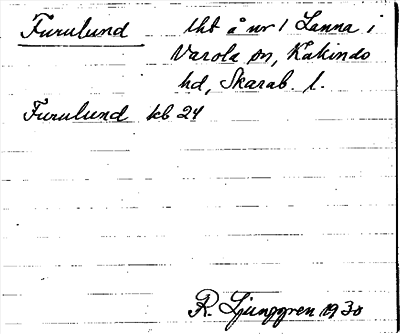 Furulund lht å nr 1 Lanna i
Varola sn, Kåkinds
hd, Skarab. l.
Furulund kb 24
R. Ljunggren 1930